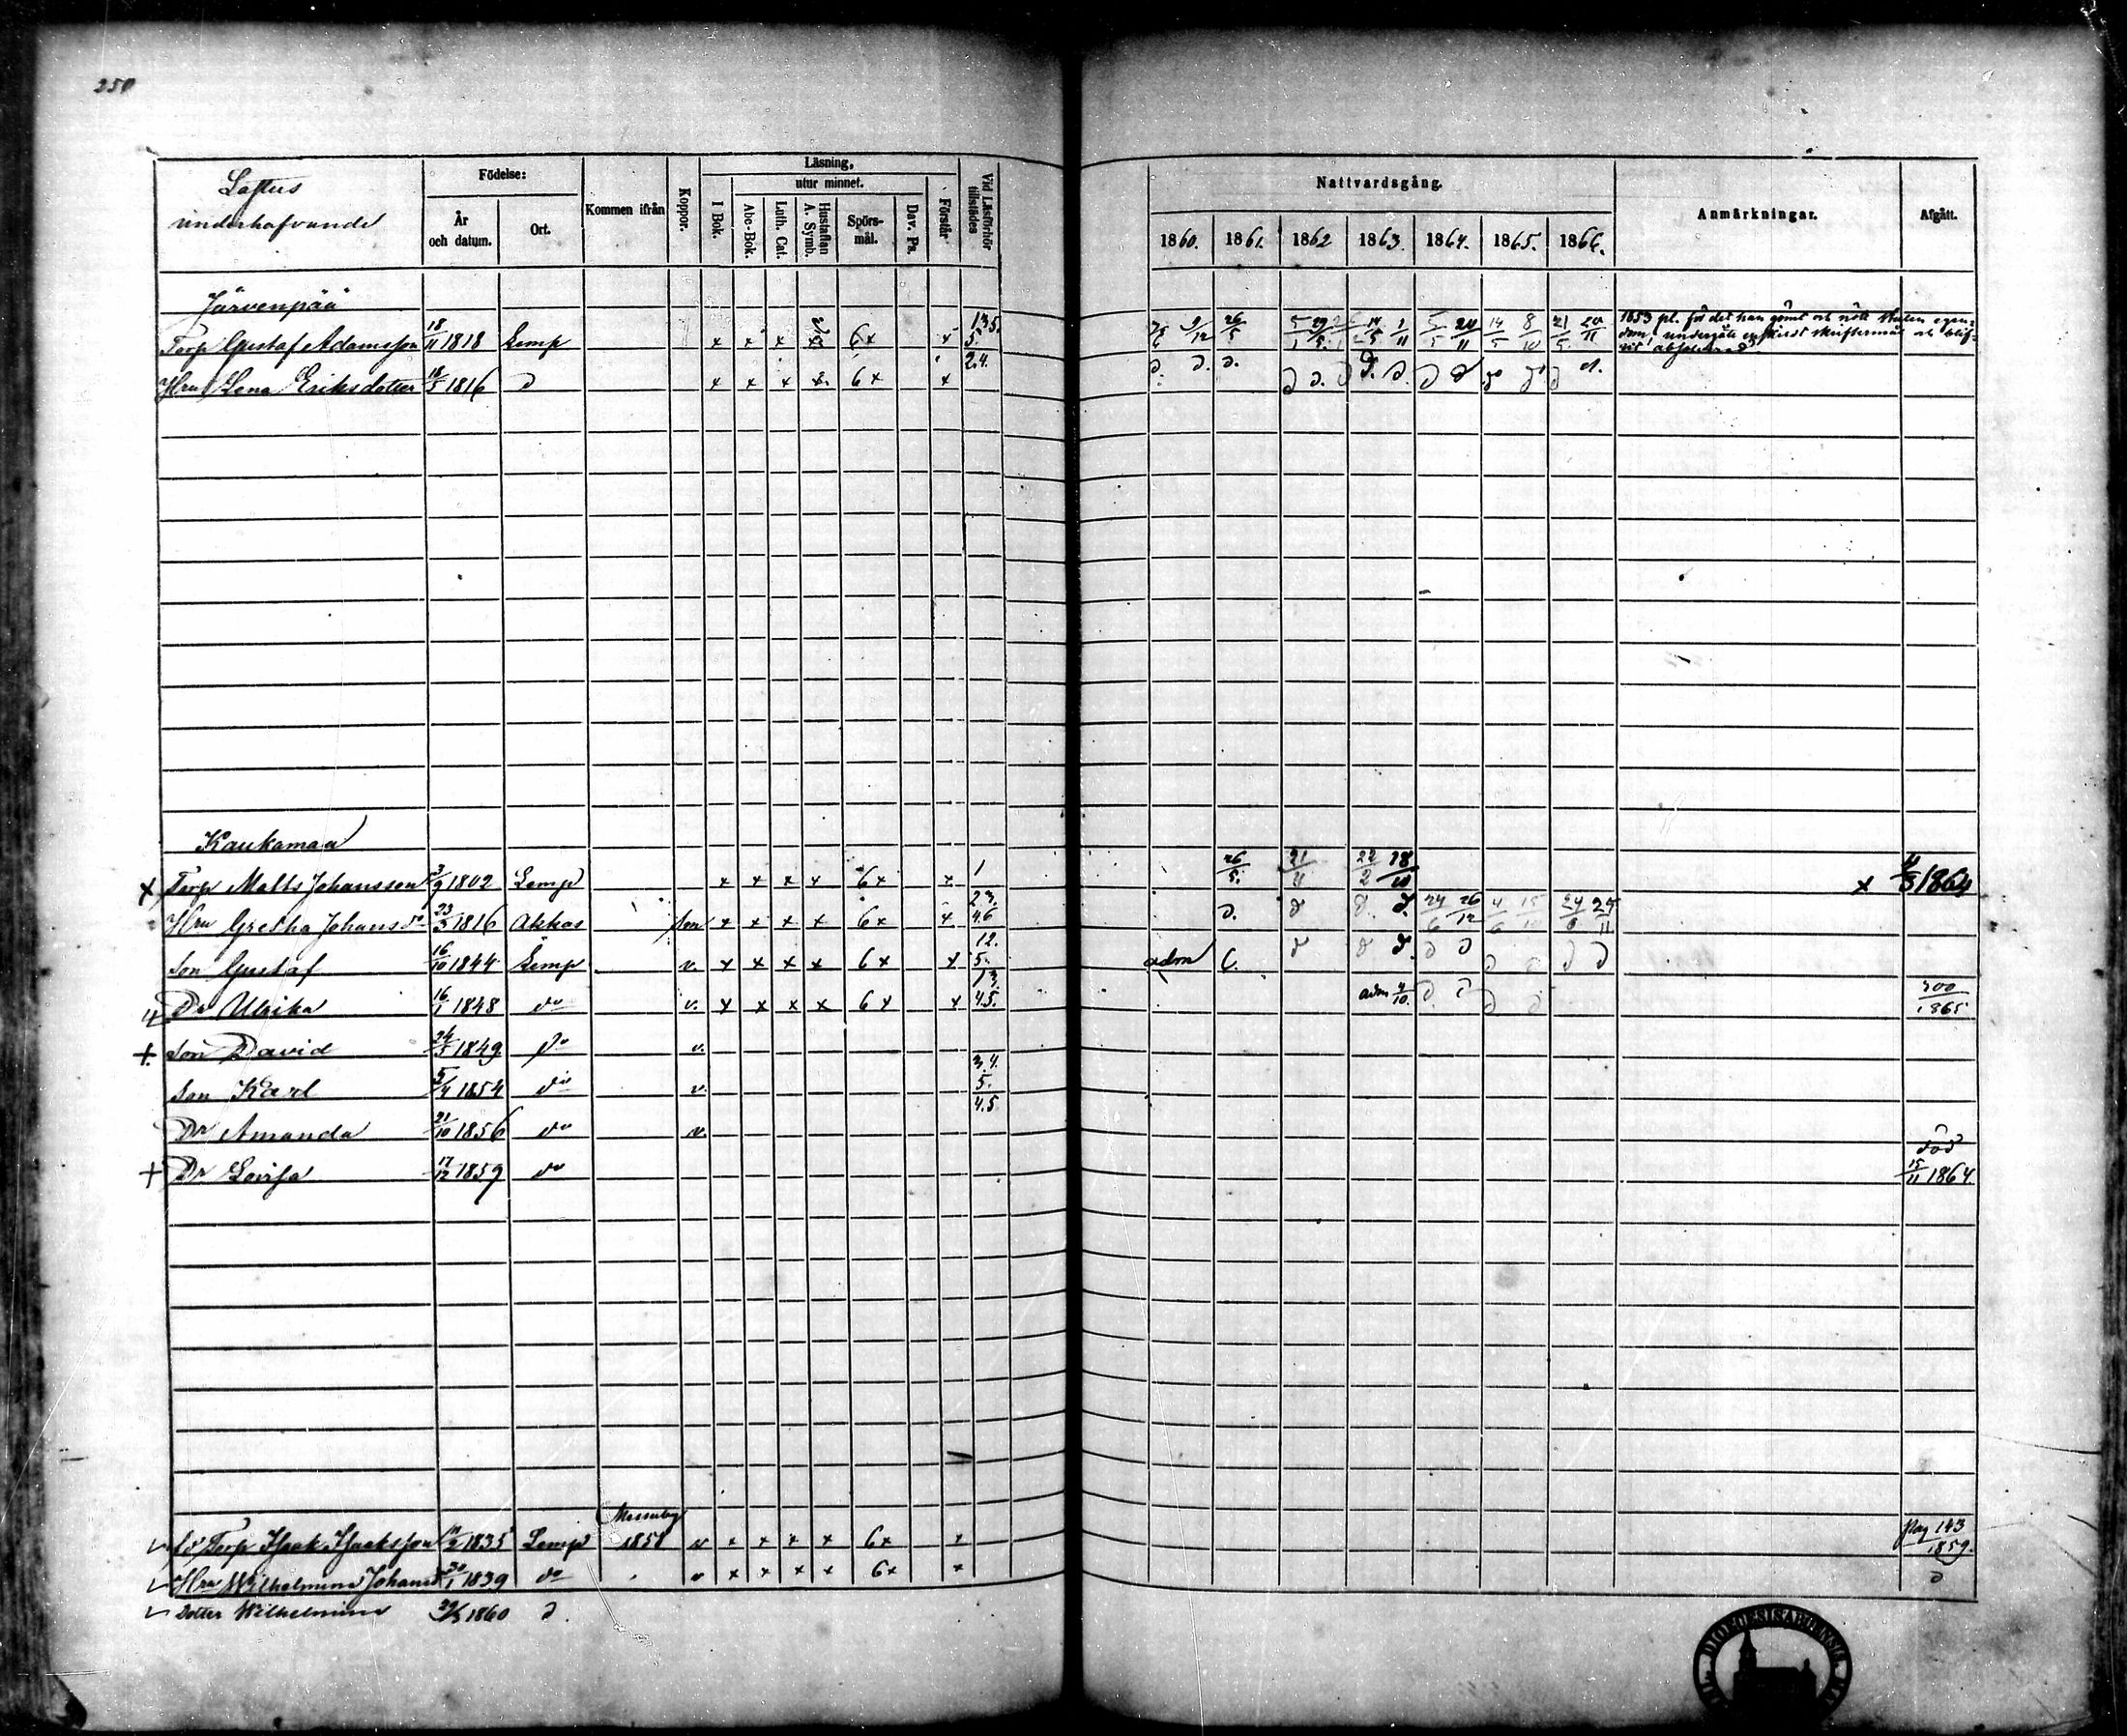 250
Laftus
underhafvande
Födelse:
År
och datum.
Ort.
Kommen ifrån
Koppor.
Läsning,
utur minnet.
I Bok.
Abc-Bok.
Luth. Cat.
Hustaflan
A. Symb.
Spörs-
mål.
Dav. Ps.
Förstår
Vid Läsförhör
tillstädes
Nattvardsgång.
1860. 1861. 1862 1863. 1864. 1865. 1866.
Anmärkningar.
Afgått.
Järvenpää
Torp Gustaf Adamsson 18/11 1818 Lemp x x x x 6x x 135. 5. 9/12 26/5 14/5 1/11 5/5 20/11 14/5 8/10 21/5 20/11
1853 pl. för det han gömt och nött stulen egen-
dom, undergått enskildt skriftermål och blif-
vit absolverad
Hru Lena Eriksdotter 18/5 1816 d x x x x 6x x 2.4. d. d. d. d d. d. d. d d d
Kaukamaa
x Torp Matts Johansson 3/9 1802 Lemp x x x x 6x x 1 26/5. 21/4 22/2 18/10 x 4/3 1864
Hru Gretha Johansdr 23/3 1816 Akkas x x x x 6x x 2.3. 4.6 d. d d. 24/6 26/12 4/6 24/6 25/11
Son Gustaf 16/10 1844 Lemp v. x x x x 6x x 12. 5. adm C. d d d. d d d d d d
Dr Ulrika 16/1 1848 do v. x x x x 6x x 13. 45. adm 4/10. d d d d 200/1865
+ Son David 24/5 1849 do v.
Son Karl 5/4 1854 do v. 3.4. 5.
Dr Amanda 21/10 1856 do v. 4.5
+ Dr Lovisa 17/12 1859 do död 15/11 1864
fd Torp Isaak Isaksson 1835 Lemp 1851 v x x x x 6x x Pag 143 1859.
Hru Wilhelmina Johansd 30/1 1839 do v x x x x 6x x d
Dotter Wilhelmina 29/3 1860 d.
DIOECESIS ABOENSIS